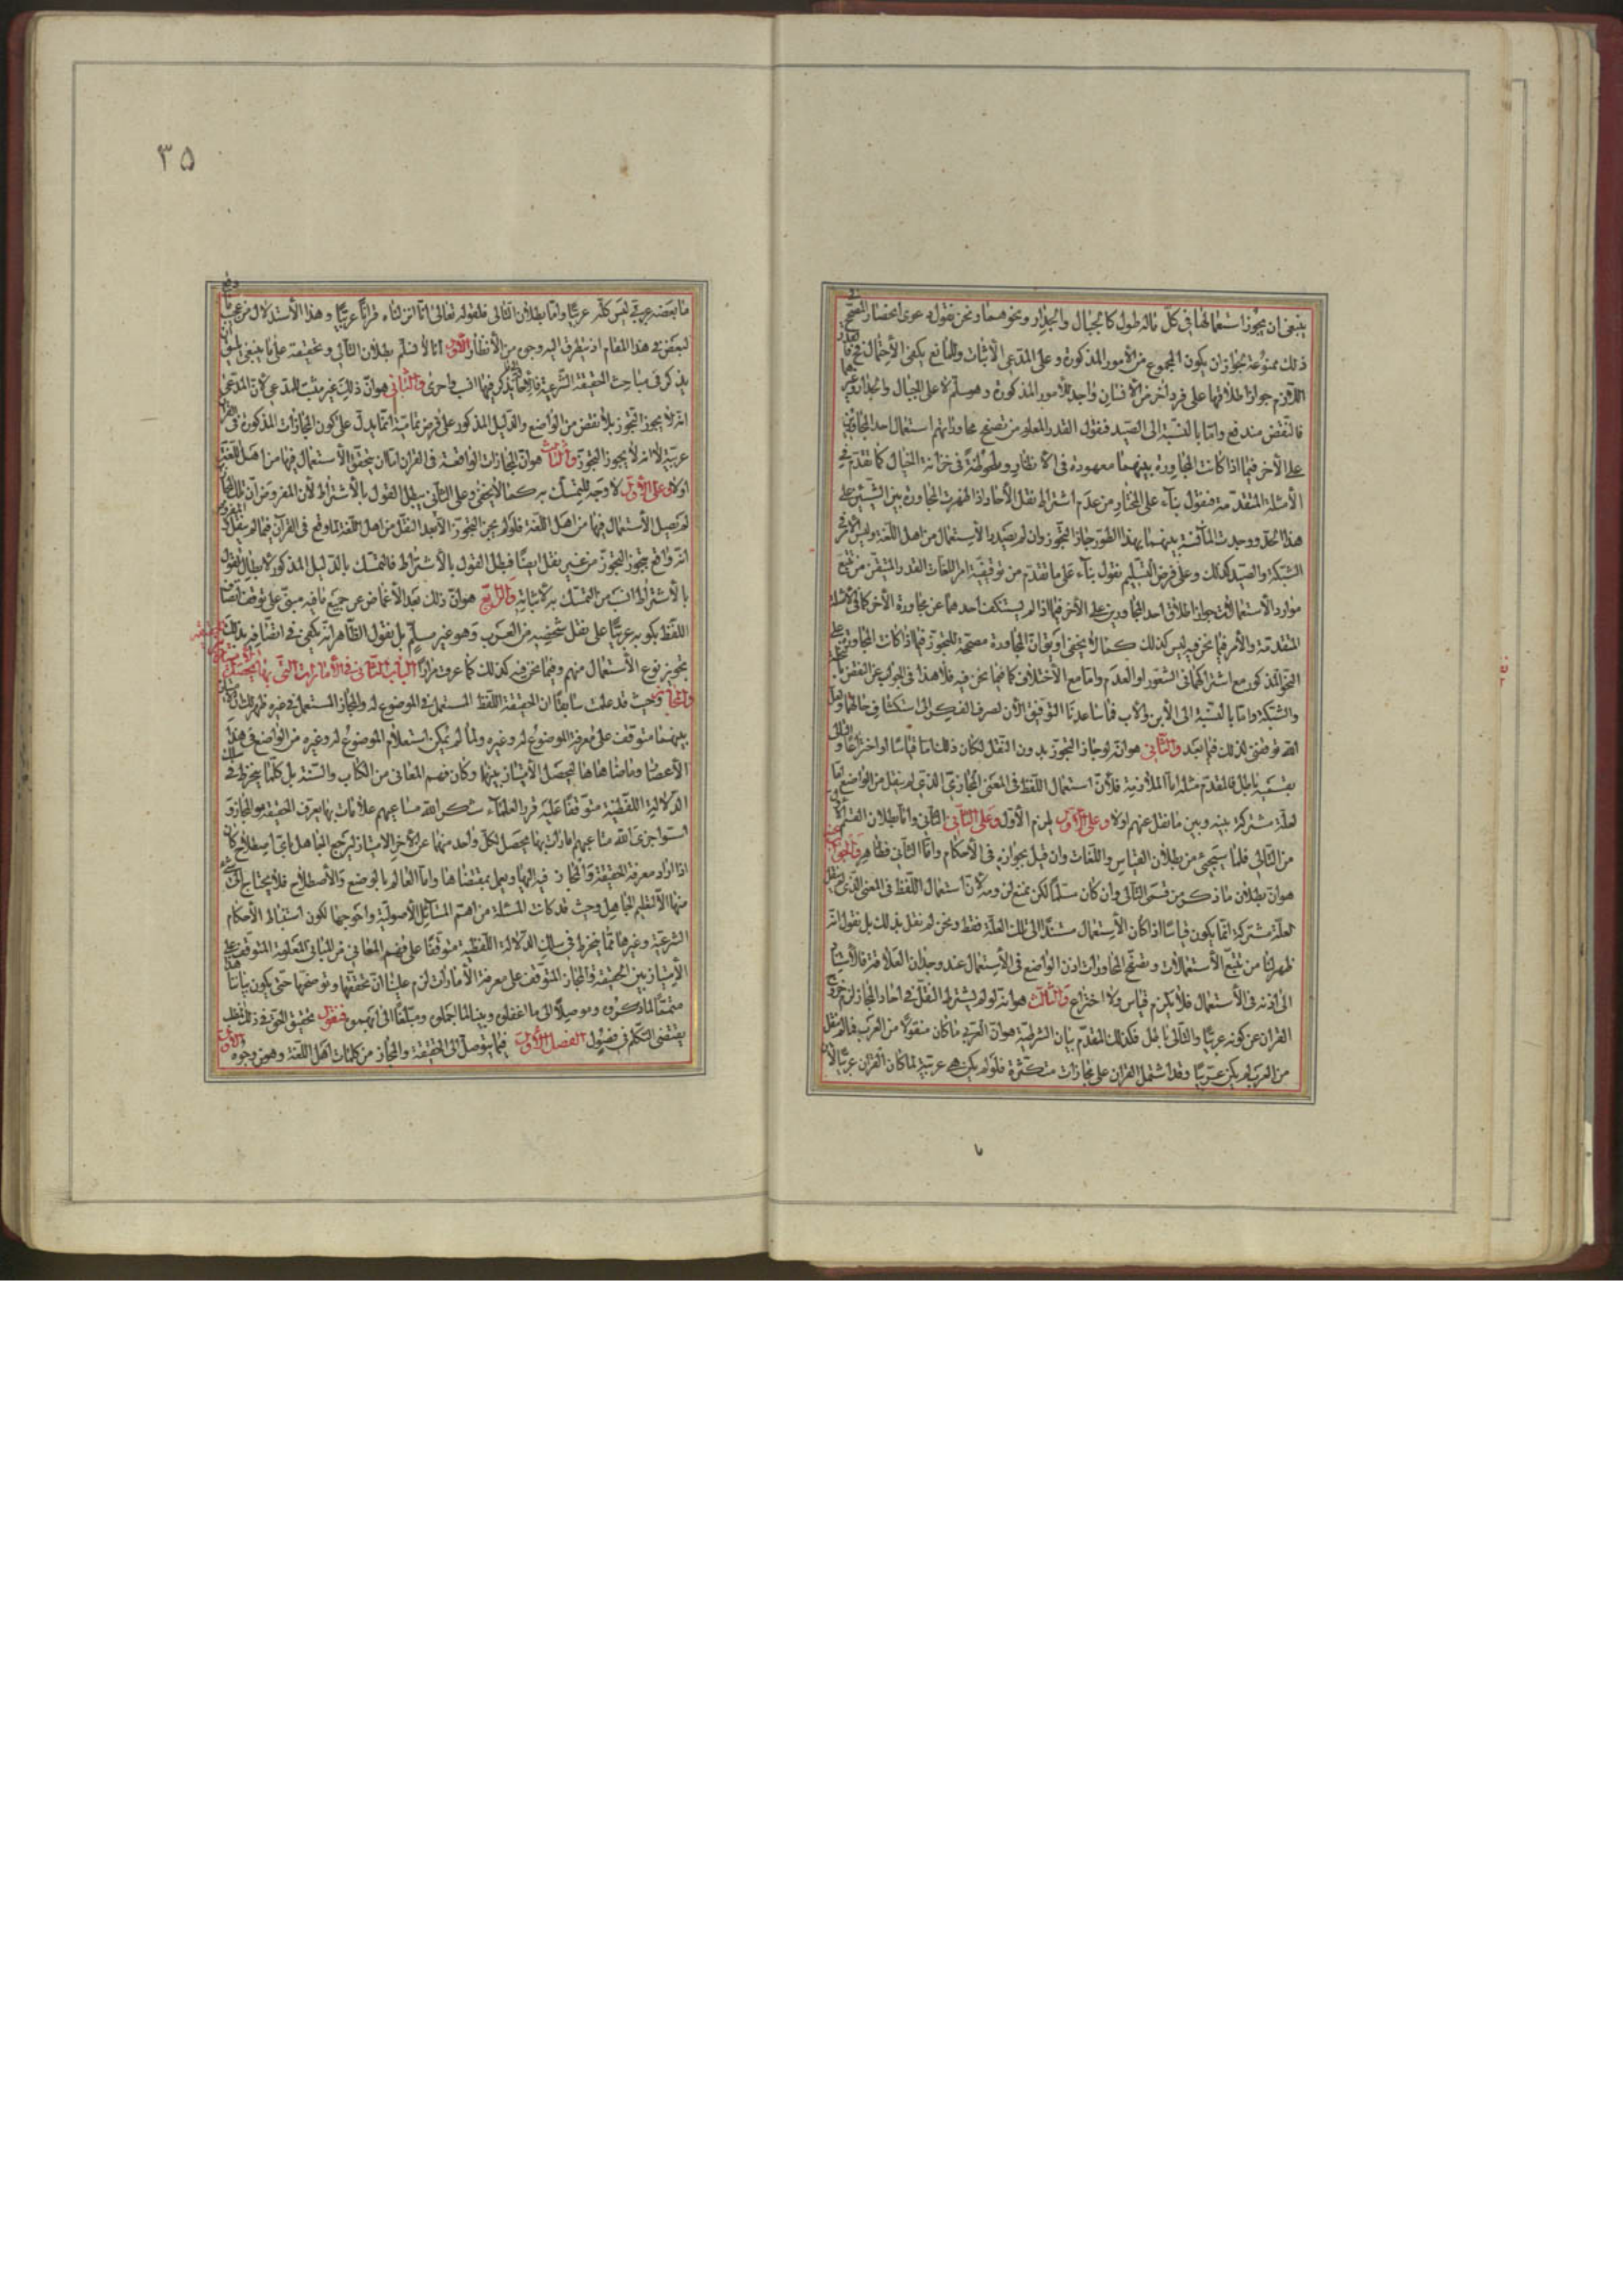 ينبغى ان يجوز استعمالها فى كل ماله طول كالجبال والجدار ونحوهما ونحن نقول دعوى انحصار المصحح فى
ذلك ممنوعة لجواز ان يكون المجموع من الامور المذكورة وعلى المدعى الاثبات وللمانع يكفى الاحتمال فح
اللازم جواز اطلاقها على فرد اخر من الانسان واجد للامور المذكورة وهو مسلم لا على الجبال والجدار وغيرها
فالنقض مندفع واما بالنسبة الى الصيد فنقول القدر المعلوم من تصفح محاوراتهم استعمال احد المجاورين
على الآخر فيما اذا كانت المجاورة بينهما معهودة فى الانظار وملحوظة فى خزانة الخيال كما تقدم فى
الأمثلة المتقدمة فنقول بناء على المختار من عدم اشتراط نقل الآحاد اذا ظهرت المجاورة بين الشيئين على
هذا المحل ووجدت المآنسة بينهما بهذا الطور جاز التجوز وان لم يصدر الاستعمال من اهل اللغة وليس الامر فى
الشبكة والصيد كذلك وعلى فرض التسليم نقول بناء على ما تقدم من توقيفية امر اللغات القدر المتيقن من تتبع
موارد الاستعمالات جواز اطلاق احد المجاورين على الآخر فيما اذا لم يستنكف احدهما عن مجاورة الآخر كما فى الامثلة
المتقدمة والأمر فيما نحن فيه ليس كذلك كما لا يخفى او يق ان المجاورة مصححة للتجوز فيما اذا كانت المجاورة على
النحو المذكور مع اشتراكهما فى الشعور او العدم واما مع الاختلاف كما فيما نحن فيه فلا هذا فى الجواب عن النقض بالنخلة
والشبكة واما بالنسبة الى الأبن والأب فما ساعدنا التوفيق الآن لصرف الفكر الى استكشاف حالهما ولعل
الله يوفقنى لذلك فيما بعد والثانى هو انه لو جاز التجوز بدون النقل لكان ذلك اما قياسا او اختراعا والتالى
بقسميه باطل فالمقدم مثله اما الملازمة فلأن استعمال اللفظ فى المعنى المجازى الذى لم ينقل من الواضع اما
لعلة مشتركة بينه وبين ما نقل عنهم اولا وعلى الاول يلزم الأول وعلى الثانى الثانى واما بطلان القسم الاول
من التالى فلما سيجئ من بطلان القياس واللغات وان قيل بجوازه فى الأحكام واما الثانى فظاهر والجواب عنه
هو ان بطلان ما ذكر من قسمى التالى وان كان مسلما لكن نمنع لزومه لأن استعمال اللفظ فى المعنى الذى لم ينقل
لعلة مشتركة انما يكون قياسا اذا كان الاستعمال مستندا الى تلك العلة فقط ونحن لم نقل بذلك بل نقول انه
ظهر لنا من تتبع الأستعمالات وتصفح المحاورات اذن الواضع فى الأستعمال عند وجدان العلاقة فالاستناد
الى اذنه فى الأستعمال فلا يلزم قياس ولا اختراع والثالث هو انه لو لم يشترط النقل فى احاد المجاز لزم خروج
القران عن كونه عربيا والتالى باطل فكذلك المقدم بيان الشرطية هو ان العربى ما كان منقولا من العرب فما لم ينقل
من العرب لم يكن عربيا وقد اشتمل القران على مجازات متكثرة فلو لم يكن هى عربية لما كان القران عربيا لأن
٣٥
ما بعضه عربى ليس كله عربيا واما بطلان التالى فلقوله تعالى انا انزلناه قرانا عربيا وهذا الأستدلال من عجيب ما وقع
لبعض فى هذا المقام اذ يتطرق اليه وجوه من الأنظار الاول انا لا نسلم بطلان التالى وتحقيقه على ما ينبغى يليق ان
يذكر فى مباحث الحقيقة الشرعية فانما يذكر فيها انسب واحرى والثانى هو ان ذلك غير مثبت للمدعى لأن المدعى
انه لا يجوز التجوز بلا نقض من الواضع والدليل المذكور على فرض تماميته انما يدل على كون المجازات المذكورة فى القران
عربية لا انه لا يجوز التجوز والثالث هو ان المجازات الواقعة فى القران اما ان يتحقق الأستعمال فيها من اهل اللغة
اولا وعلى الأول لا وجه للتمسك به كما لا يخفى وعلى الثانى يبطل القول بالأشتراط لأن المفروض ان تلك المجازات
لم يصل الأستعمال فيها من اهل اللغة فلو لم يجز التجوز الا بعد النقل من اهل اللغة لما وقع فى القرآن فيما لم ينقل
انه واقع فيجوز التجوز من غير نقل ايضا فبطل القول بالأشتراط فالتمسك بالدليل المذكور لأبطال القول
بالأشتراط انسب من التمسك به لأثباته والرابع هو ان ذلك بعد الأغماض عن جميع ما فيه مبنى على توقف اتصاف
اللفظ بكونه عربيا على نقل شخصه من العرب وهو غير مسلم بل نقول الظاهر انه يكفى فى اتصافه بذلك
تجويز نوع الأستعمال منهم وفيما نحن فيه كذلك كما عرفت مرارا الباب الثانى فى الأمارات التى بها
والمجاز وحيث قد علمت سابقا ان الحقيقة اللفظ المستعمل فى الموضوع له والمجاز المستعمل فى غيره ظهر لك ان
بينهما متوقف على معرفة الموضوع له وغيره ولما لم يمكن استعلام الموضوع له وغيره من الواضع فى هذه
الأعصار وما ضاهاها ليحصل الأمتياز بينهما وكان فهم المعانى من الكتاب والسنة بل كلما ينخرط فى سلك
الدلالية اللفظية متوقفا عليه قرر العلماء شكر الله مساعيهم علامات بها يعرف الحقيقة والمجاز و
اسسوا جزى الله مساعيهم امارات بها يحصل لكل واحد منهما عن الآخر الامتياز ليرجع الجاهل باى اصطلاح كان
اذا اراد معرفة الحقيقة والمجاز فيه اليها ويعمل بمقتضاها واما العالم بالوضع والأصطلاح فلا يحتاج الى شئ
منها الا لتعليم الجاهل وحيث قد كانت المسئلة من اهم المسائل الأصولية واحوجها لكون استنباط الأحكام
الشرعية وغيرها مما ينخرط فى سلك الدلالة اللفظية متوقفا على فهم المعانى من المبانى المعلومة المتوقف على
الأمتياز بين الحقيقة والمجاز المتوقف على معرفة الأمارات لزم علينا ان نحققها ونوضحها حتى يكون بياننا هذا
متمما لما ذكروه وموصلا الى ما اغفلوه ومبينا لما اجملوه ومبلغا الى ما ابهموه فنقول تحقيق الحق فى ذلك المطلب
يقتضى التكلم فى فصول الفصل الأول فيما يتوصل الى الحقيقة والمجاز من كلمات اهل اللغة وهو من وجوه الاول